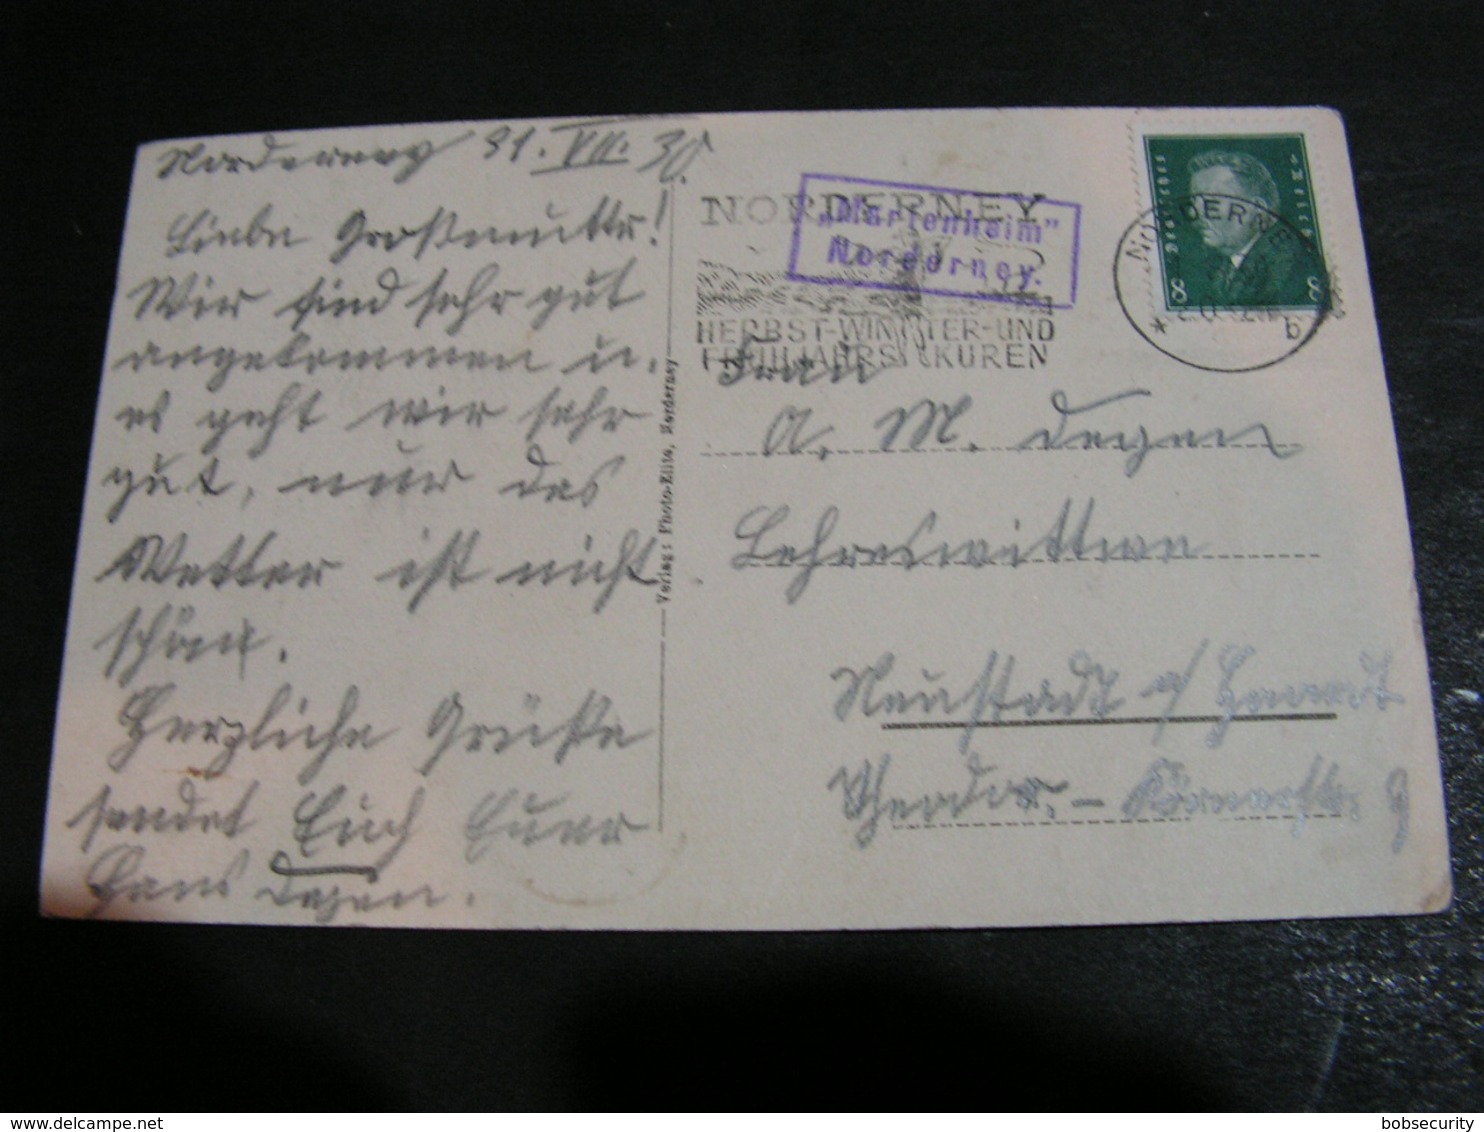 Norderney 31. VII. 30.
Liebe Großmutter!
Wir sind sehr gut
angekommen u.
es geht wir sehr
gut, nur das
Wetter ist nicht
schön.
Herzliche Grüße
sendet Euch Euer
Hans Degen.
Verlag: Photo-Elite, Norderney
NORDERNEY
HERBST-WINTER-UND
FRÜHJAHRSKUREN
„Marienheim"
Norderney.
Deutsches Reich
8 8
NORDERNEY
* b
Frau
A. M. Degen
Lehreswittwe
Neustadt a/ Haardt
Theodor.-Körnerstr. 9
delcampe.net
bobsecurity